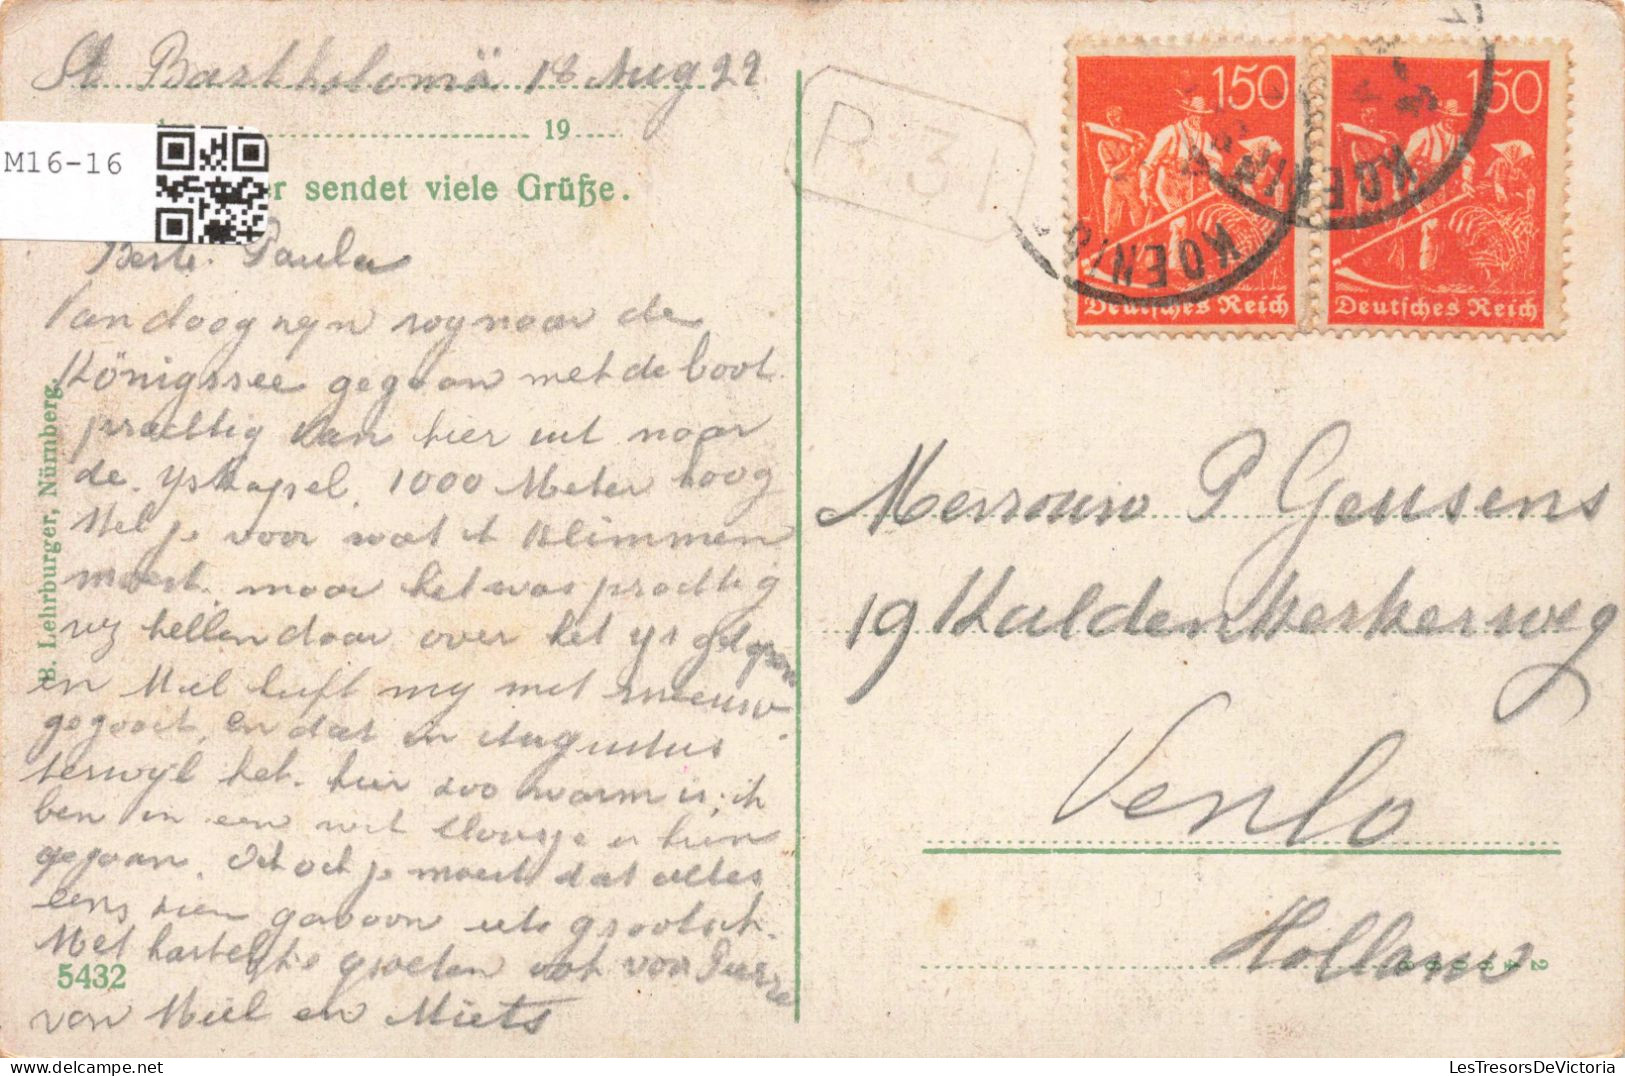 St Bartholomä 18 Aug 22
19
M16-16
er sendet viele Grüße.
Beste Paula
Vandoog zyn wy naar de
Königssee gegaan met de boot
prachtig van hier uit naar
de yskapel. 1000 Meter hoog
Stel je voor wat ik klimmen
moest, maar het was prachtig
wy hellen daar over het ys gelopen
en Miel heeft my met sneeuw
gegooit, en dat in Augustus
terwyl het hier zoo warm is, ik
ben in een wit blousje er heen
gegaan. Och och je moest dat alles
eens zien gewoon iets grootsch.
Met hartelyke groeten ook von Pierre
van Miel en Miets
B. Lehrburger, Nürnberg.
5432
P. 31
150
Deutsches Reich
150
Deutsches Reich
KOENIGS
KOENIGS
Mevrouw P Geusens
19 Kaldenkerkerweg
Venlo
Holland
LesTresorsDeVictoria